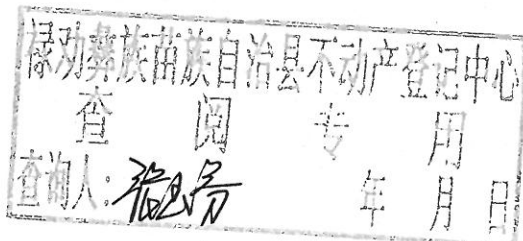 禄劝彝族苗族自治县不动产登记中心
查阅专用
查询人:张
年 月 日